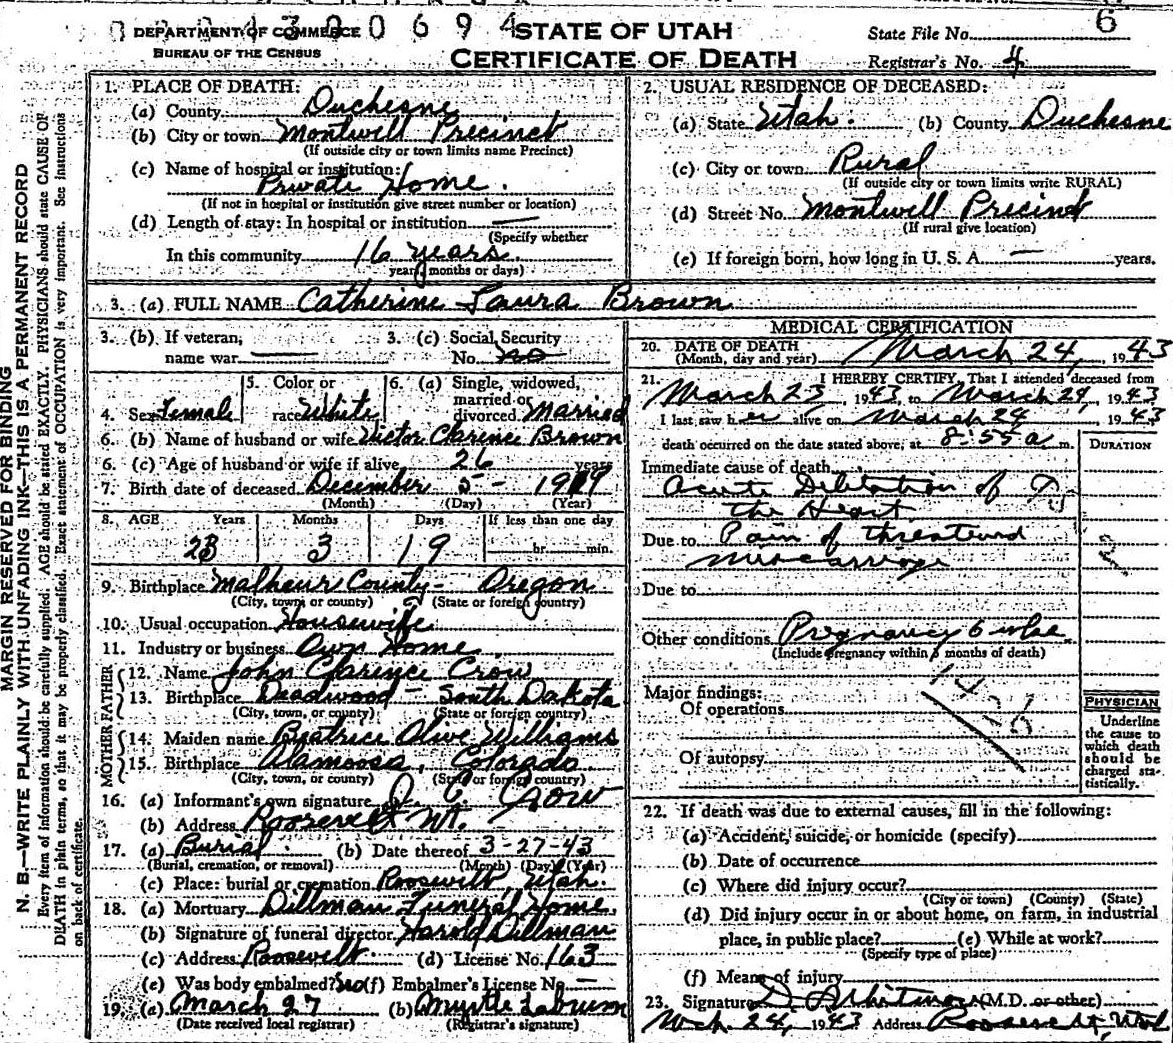 DEPARTMENT OF COMMERCE
BUREAU OF THE CENSUS
0 6 9 4
STATE OF UTAH
CERTIFICATE OF DEATH
State File No. 6
Registrar's No. 4
MARGIN RESERVED FOR BINDING
N. B.—WRITE PLAINLY WITH UNFADING INK—THIS IS A PERMANENT RECORD
Every item of information should be carefully supplied. AGE should be stated EXACTLY. PHYSICIANS should state CAUSE OF
DEATH in plain terms, so that it may be properly classified. Exact statement of OCCUPATION is very important. See Instructions
on back of certificate.
1. PLACE OF DEATH:
(a) County Duchesne
(b) City or town Montwell Precinct
(If outside city or town limits name Precinct)
(c) Name of hospital or institution:
Private Home.
(If not in hospital or institution give street number or location)
(d) Length of stay: In hospital or institution —
(Specify whether
In this community 16 years.
years, months or days)
2. USUAL RESIDENCE OF DECEASED:
(a) State Utah. (b) County Duchesne
(c) City or town Rural
(If outside city or town limits write RURAL)
(d) Street No. Montwell Precinct
(If rural give location)
(e) If foreign born, how long in U. S. A. — years.
3. (a) FULL NAME Catherine Laura Brown
3. (b) If veteran,
name war —
3. (c) Social Security
No. no
4. Sex Female
5. Color or
race White
6. (a) Single, widowed,
married or
divorced Married
6. (b) Name of husband or wife Victor Clarence Brown
6. (c) Age of husband or wife if alive 26 years
7. Birth date of deceased December 5 - 1919
(Month) (Day) (Year)
8. AGE Years Months Days If less than one day
23 3 19 hr. min.
9. Birthplace Malheur County - Oregon
(City, town, or county) (State or foreign country)
10. Usual occupation Housewife
11. Industry or business Own Home
FATHER
12. Name John Clarence Crow
13. Birthplace Deadwood - South Dakota
(City, town, or county) (State or foreign country)
MOTHER
14. Maiden name Beatrice Olive Williams
15. Birthplace Alamoosa, Colorado
(City, town, or county) (State or foreign country)
16. (a) Informant's own signature J. C. Crow
(b) Address Roosevelt Ut.
17. (a) Burial. (b) Date thereof 3-27-43
(Burial, cremation, or removal) (Month) (Day) (Year)
(c) Place: burial or cremation Roosevelt, Utah.
18. (a) Mortuary Dillman Funeral Home.
(b) Signature of funeral director Harold Dillman
(c) Address Roosevelt. (d) License No. 163
(e) Was body embalmed? no (f) Embalmer's License No. —
19. (a) March 27 (b) Myrtle Labrum
(Date received local registrar) (Registrar's signature)
MEDICAL CERTIFICATION
20. DATE OF DEATH
(Month, day and year) March 24, 1943
21. I HEREBY CERTIFY, That I attended deceased from
March 23, 1943, to March 24, 1943
I last saw her alive on March 24, 1943
death occurred on the date stated above, at 8:55 a m.
DURATION
Immediate cause of death
Acute Dilitation of
the Heart
Due to Pain of threatened
miscarriage
Due to
Other conditions Pregnancy 6 wks.
(Include pregnancy within 3 months of death)
Major findings:
Of operations
Of autopsy
PHYSICIAN
Underline
the cause to
which death
should be
charged sta-
tistically.
22. If death was due to external causes, fill in the following:
(a) Accident, suicide, or homicide (specify)
(b) Date of occurrence
(c) Where did injury occur?
(City or town) (County) (State)
(d) Did injury occur in or about home, on farm, in industrial
place, in public place? (e) While at work?
(Specify type of place)
(f) Means of injury
23. Signature (M.D. or other)
Mch. 24, 1943 Address Roosevelt, Utah